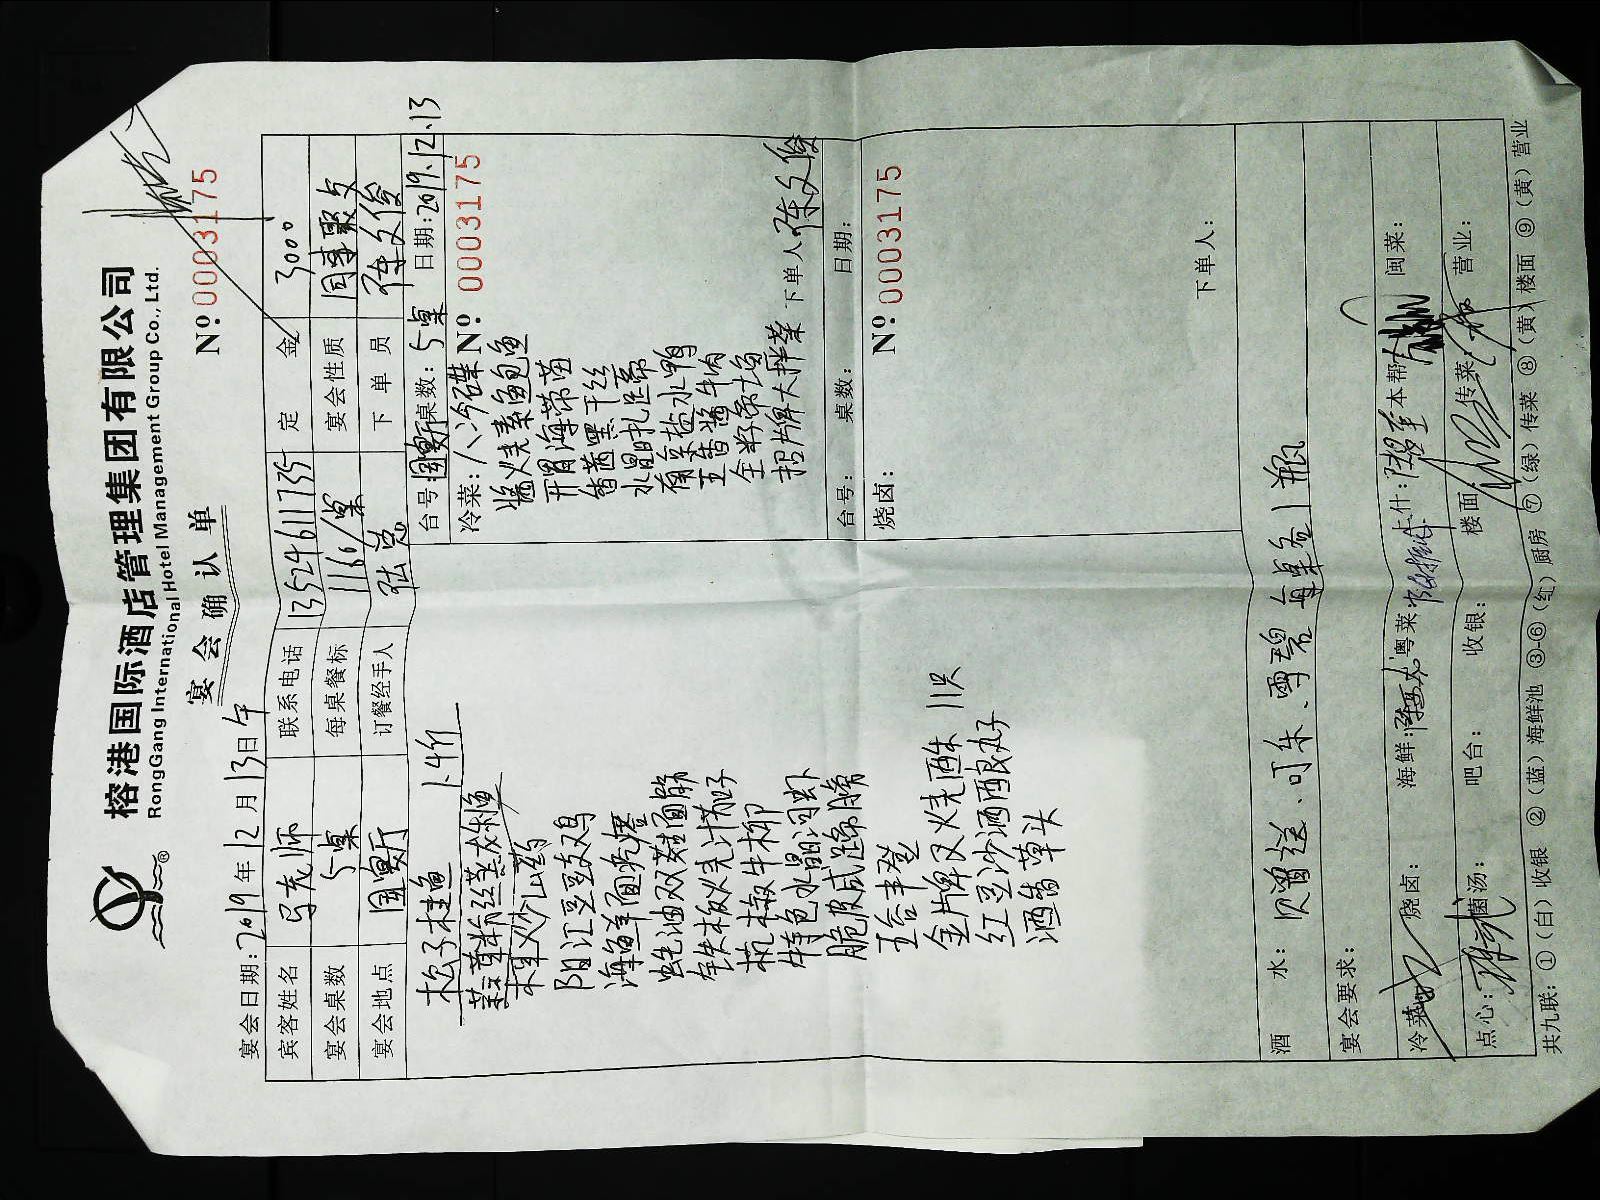 榕港国际酒店管理集团有限公司
RongGang International Hotel Management Group Co., Ltd.
宴会确认单
宴会日期：2019年12月13日午
Nº 0003175
宾客姓名 马老师 联系电话 13524611735 定金 3000
宴会桌数 5桌 每桌餐标 1160/桌 宴会性质 同事聚会
宴会地点 国宴厅 订餐经手人 张总 下单员 陈文俊
台号：国宴厅 桌数：5桌 日期：2019.12.13
冷菜：八冷碟 Nº 0003175
酱烧素鲍鱼
开胃海带苗
香茜黑干丝
水晶扎足蹄
南京盐水鸭
五香酱牛肉
招牌大拌菜
下单人 陈文俊
松子桂鱼
蒜蓉粉丝蒸龙利鱼
阳江豆豉鸡
蚝油双菇面筋
杭椒牛柳
特色水晶河虾
脆皮咸蹄膀
五谷丰登
金牌叉烧酥 11只
红豆沙酒酿丸子
酒香草头
台号： 桌数： 日期：
烧卤：
Nº 0003175
下单人：
酒水：贈送．可乐、雪碧 每桌各1瓶
宴会要求：
冷菜： 烧卤： 海鲜： 粤菜 上什： 本帮 闽菜：
点心： 菌汤： 吧台： 收银： 楼面： 传菜： 营业：
共九联：①（白）收银 ②（蓝）海鲜池 ③-⑥（红）厨房 ⑦（绿）传菜 ⑧（黄）楼面 ⑨（黄）营业